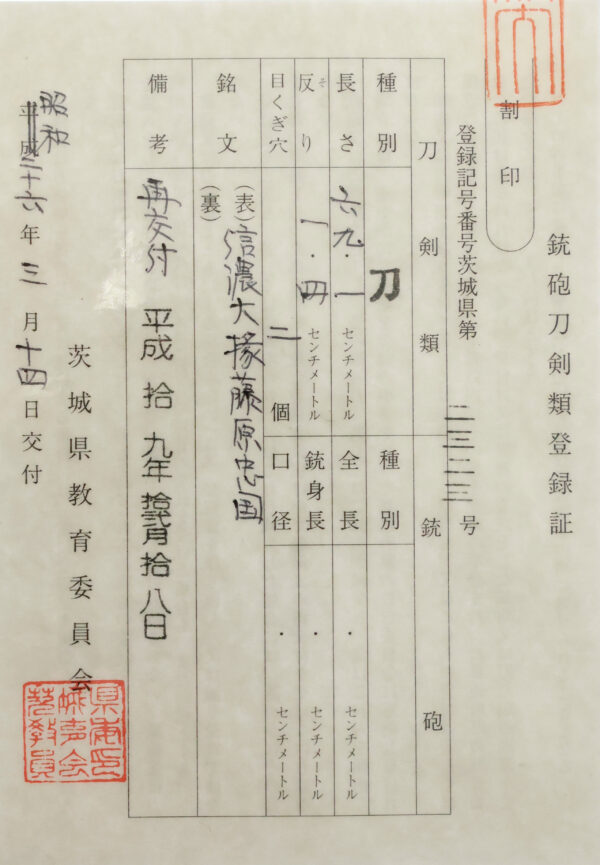 銃砲刀剣類登録証
割印
登録記号番号茨城県第二三二三号
刀剣類
銃砲
種別
刀
種別
長さ
六九・一センチメートル
全長
・センチメートル
反り
そ
一・四センチメートル
銃身長
・センチメートル
目くぎ穴
二個
口径
・センチメートル
銘文
(表)信濃大掾藤原忠国
(裏)
備考
再交付 平成拾九年拾弐月拾八日
茨城県教育委員会
昭和
平成三十六年三月十四日交付